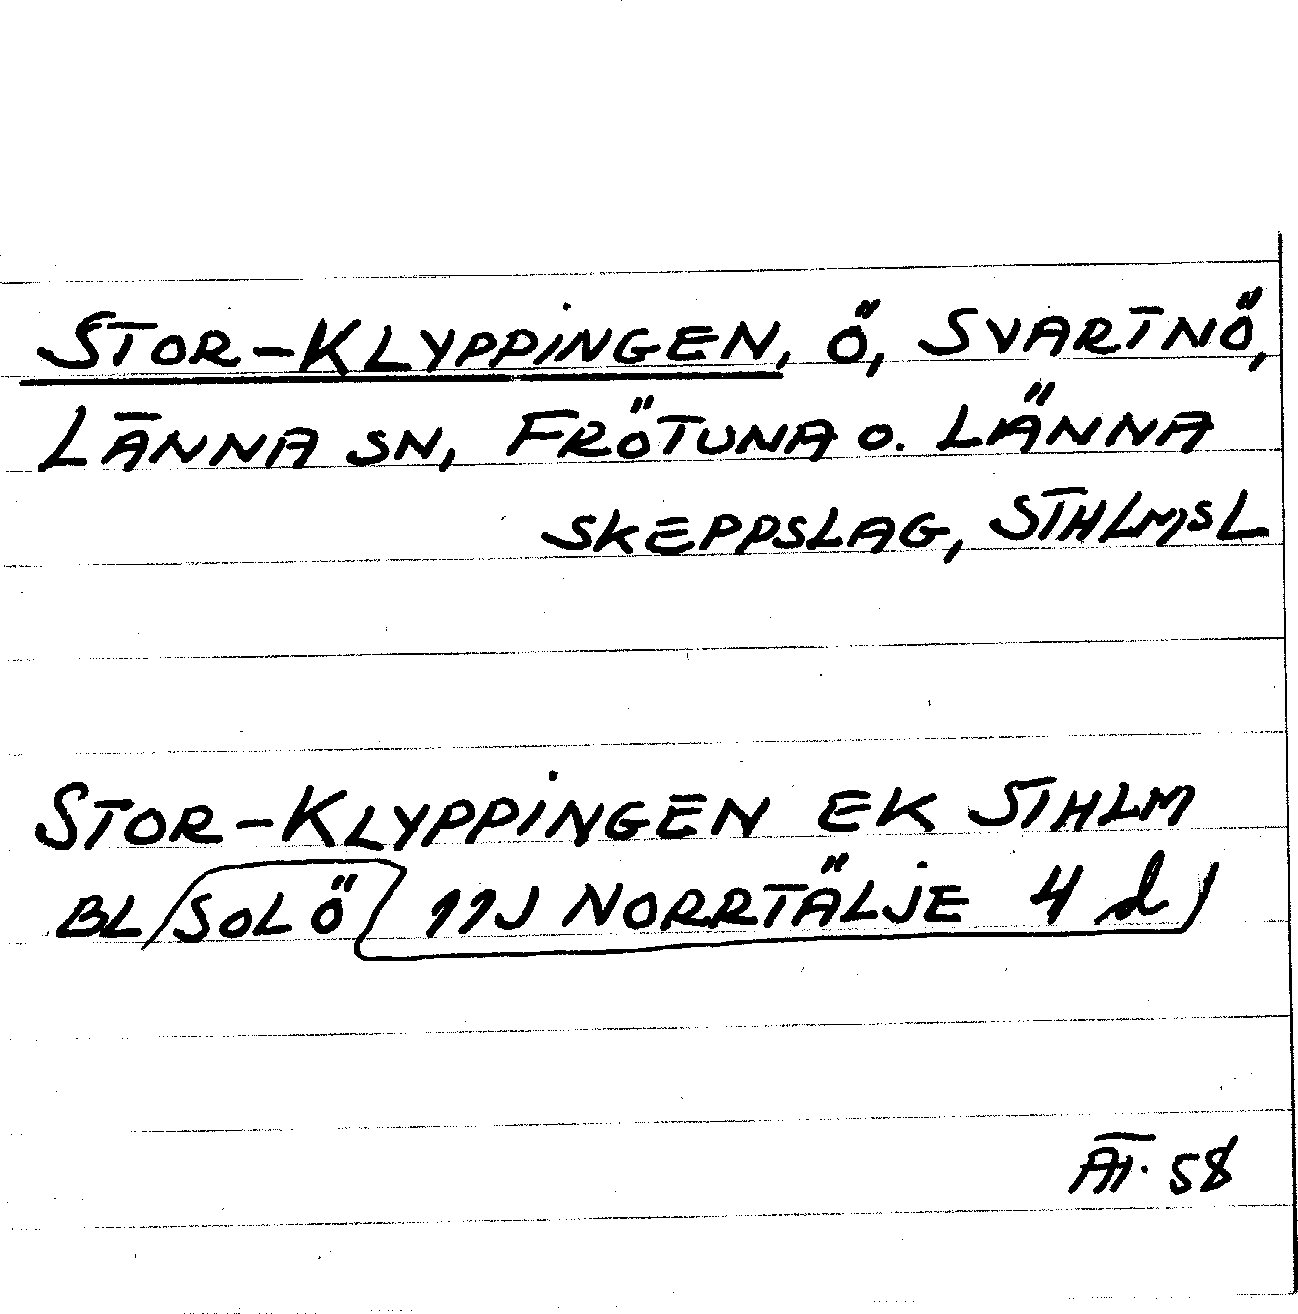 STOR-KLYPPINGEN, Ö, SVARTNÖ,
LÄNNA SN, FRÖTUNA O. LÄNNA
SKEPPSLAG, STHLMSL
STOR-KLYPPINGEN EK STHLM
BL/SOLÖ 11J NORRTÄLJE 4 d
58